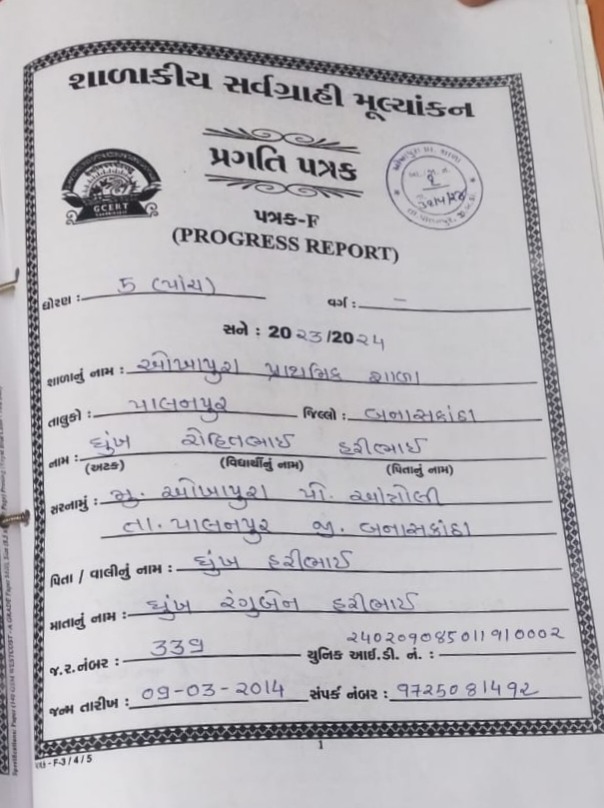 શાળાકીય સર્વગ્રાહી મૂલ્યાંકન
પ્રગતિ પત્રક
GCERT
પત્રક-F
(PROGRESS REPORT)
ધોરણ : 5 (પાંચ) વર્ગ : –
સને : 20૨૩/20૨૪
શાળાનું નામ : ઓખાપુરા પ્રાથમિક શાળા
તાલુકો : પાલનપુર જિલ્લો : બનાસકાંઠા
નામ : ઘુંખ રોહિતભાઈ હરીભાઈ
(અટક) (વિદ્યાર્થીનું નામ) (પિતાનું નામ)
સરનામું : મુ. ઓખાપુરા પો. આત્રોલી
તા. પાલનપુર જી. બનાસકાંઠા
પિતા / વાલીનું નામ : ઘુંખ હરીભાઈ
માતાનું નામ : ઘુંખ રંગુબેન હરીભાઈ
જ.ર.નંબર : 33૬ યુનિક આઈ.ડી. નં. : 240209085011910002
જન્મ તારીખ : 09-03-2014 સંપર્ક નંબર : 9725081492
1
પત્રક - F-3 / 4 / 5